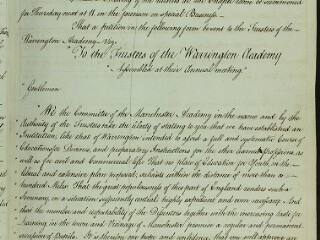 for Thursday next at 11 in the forenoon on special Business.
That a petition in the following form be sent to the Trustees of the
Warrington Academy. Viz.
"To the Trustees of the Warrington Academy
"Assembled at their Annual meeting
"Gentlemen
"We the Committee of the Manchester Academy in the name and by the
Authority of the Trustees take the liberty of stating to you that we have established an
Institution, like that of Warrington intended to afford a full and systematic Course of
Education for Divines, and preparatory Instructions for the other learned Professions as
well as for civil and Commercial life. That no place of Education for Youth, on the
liberal and extensive plan proposed, exists within the distance of more than a
hundred Miles. That the great populousness of this part of England renders such a
Seminary, in a situation sufficiently central, highly expedient and even necessary. And
that the number and respectability of the Dissenters together with the increasing taste for
learning in the town and Vicinage of Manchester promise a regular and permanent
succession of Pupils. It is therefore our hope and confidence that you will approve